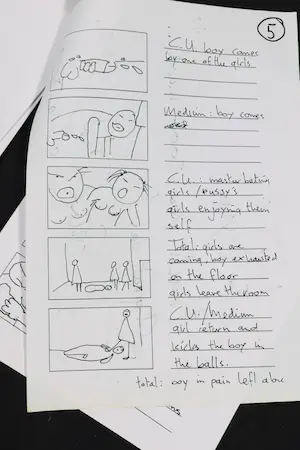 5
C.U. boy comes
for one of the girls
Medium: boy comes
C.U.: masturbating
girls / pussy's
girls enjoying them
self
Total: girls are
coming, boy exhausted
on the floor
girls leave the room
C.U. / Medium
girl return and
kicks the boy in
the balls.
total: boy in pain left alone